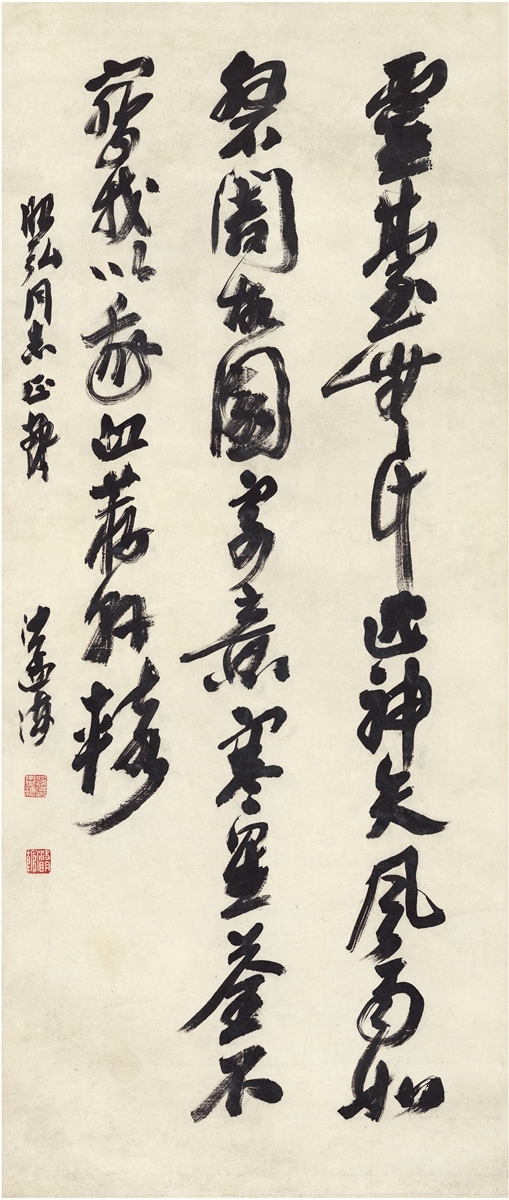 靈臺無計逃神矢風雨如
磐闇故園寄意寒星荃不
察我以我血薦軒轅
弘同志正
沙孟海